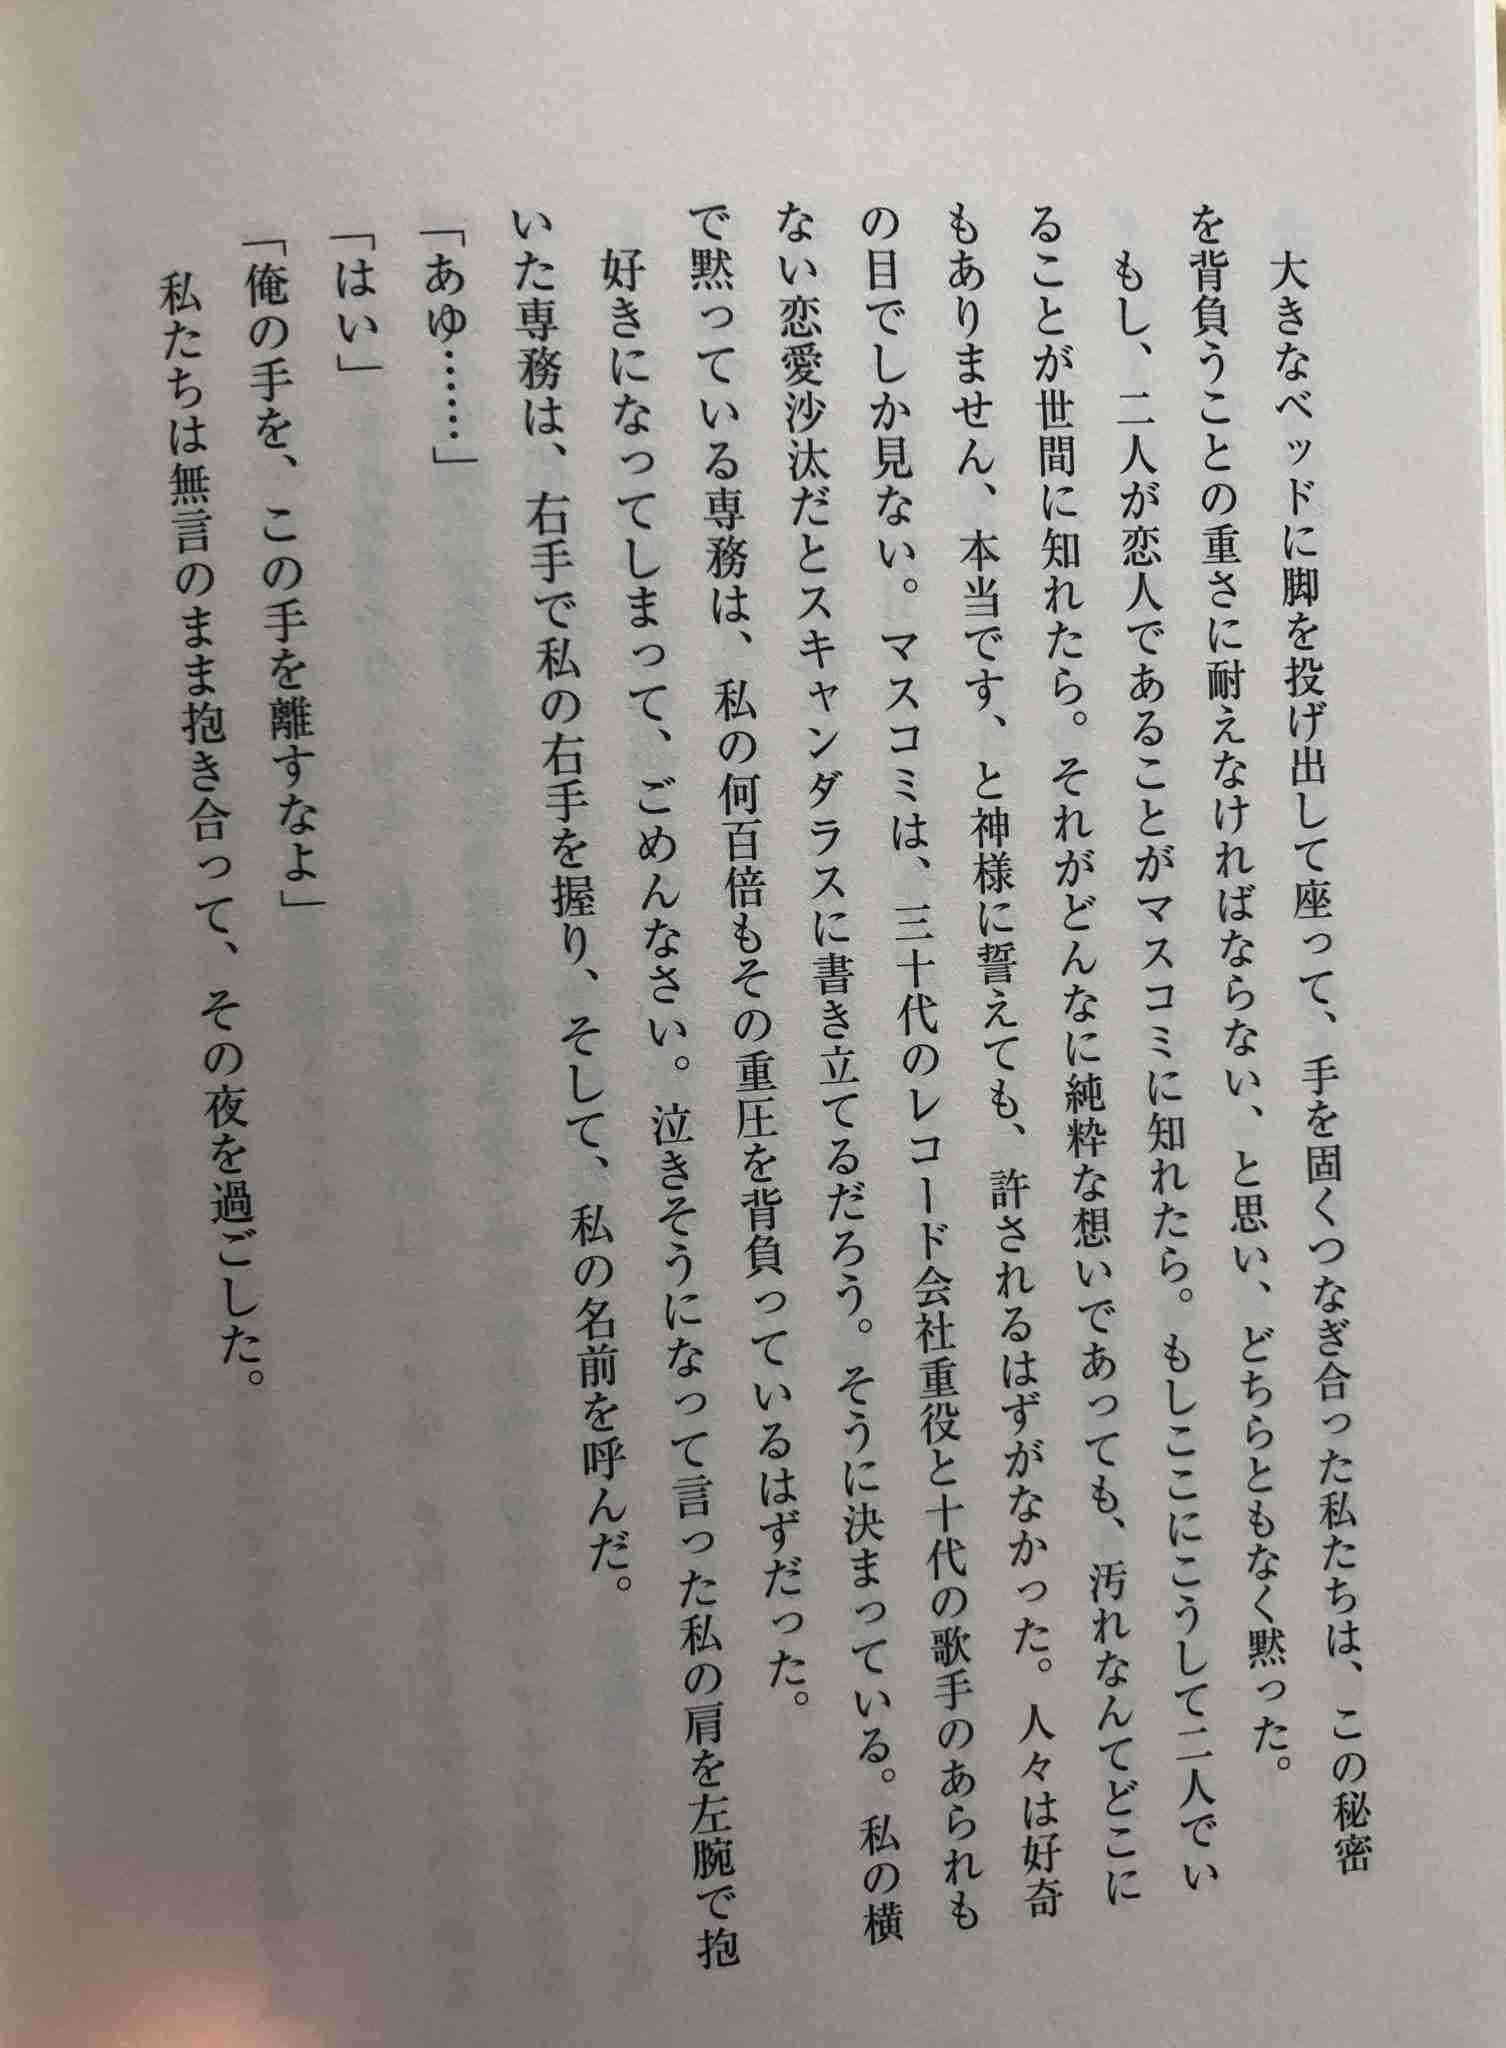 大きなベッドに脚を投げ出して座って、手を固くつなぎ合った私たちは、この秘密
を背負うことの重さに耐えなければならない、と思い、どちらともなく黙った。
もし、二人が恋人であることがマスコミに知れたら。もしここにこうして二人でい
ることが世間に知れたら。それがどんなに純粋な想いであっても、汚れなんてどこに
もありません、本当です、と神様に誓えても、許されるはずがなかった。人々は好奇
の目でしか見ない。マスコミは、三十代のレコード会社重役と十代の歌手のあられも
ない恋愛沙汰だとスキャンダラスに書き立てるだろう。そうに決まっている。私の横
で黙っている専務は、私の何百倍もその重圧を背負っているはずだった。
好きになってしまって、ごめんなさい。泣きそうになって言った私の肩を左腕で抱
いた専務は、右手で私の右手を握り、そして、私の名前を呼んだ。
「あゆ……」
「はい」
「俺の手を、この手を離すなよ」
私たちは無言のまま抱き合って、その夜を過ごした。